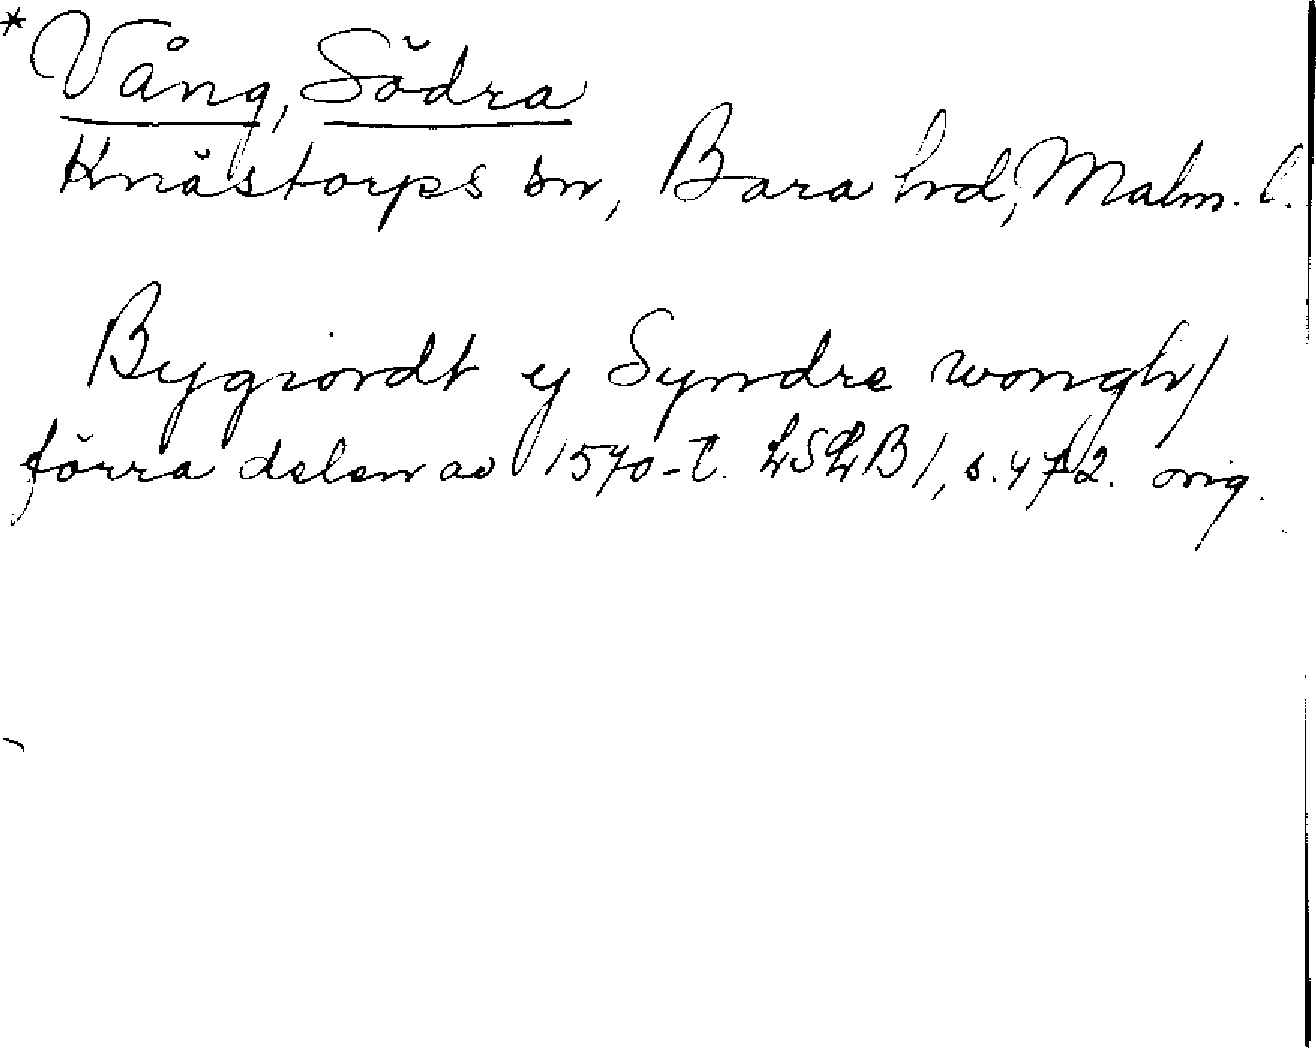 *Vång, Södra
Knästorps sn, Bara hd, Malm. l.
Bygiordt y Syndre wongh/
förra delen av 1570-t. LSLB 1, s. 472. orig.